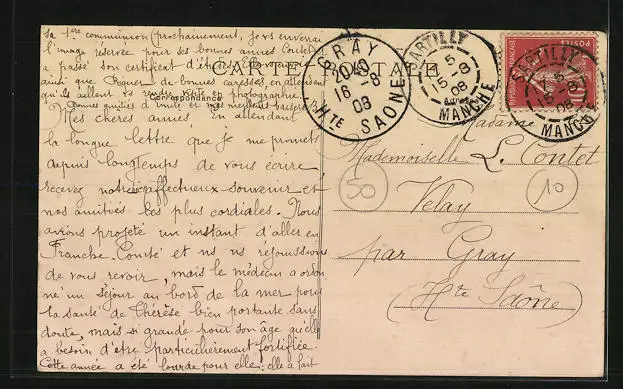 sa 1ère communion (prochainement, je vs enverrai
l'image reservée pour ses bonnes amies Contet)
a passé son certificat d'études
ainsi que de bonnes caresses, en attendant
qu'ils aillent vs rendre visite en photographie.
Bonnes amitiés d'Émile et mes meilleurs baisers
CARTE POSTALE
Correspondance
Mes chères amies, En attendant
la longue lettre que je me promets
depuis longtemps de vous écrire
recevez notre affectueux souvenir et
nos amitiés les plus cordiales. Nous
avions projeté un instant d'aller en
Franche-Comté et ns ns réjouissions
de vous revoir, mais le médecin a ordon
né un séjour au bord de la mer pour
la santé de Thérèse bien portante sans
doute, mais si grande pour son âge qu'elle
a besoin d'être particulièrement fortifiée
Cette année a été lourde pour elle : elle a fait
GRAY
20 40
16 -8
08
Hte SAONE
SARTILLY
5
15 -8
08
MANCHE
SARTILLY
5
15 -8
08
MANCHE
POSTES
10
Madame
Mademoiselle L. Contet
Velay
par Gray
(Hte Saône)
50
10